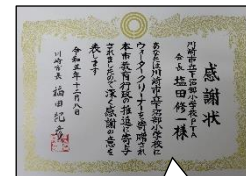 感謝状
川崎市立下沼部小学校PTA
会長 塩田修一様
あなたは川崎市立下沼部小学校に
ウォータークリーナーを寄贈され
本市教育行政の推進に寄与
されましたので深く感謝の意を
表します
令和五年十二月八日
川崎市長 福田紀彦